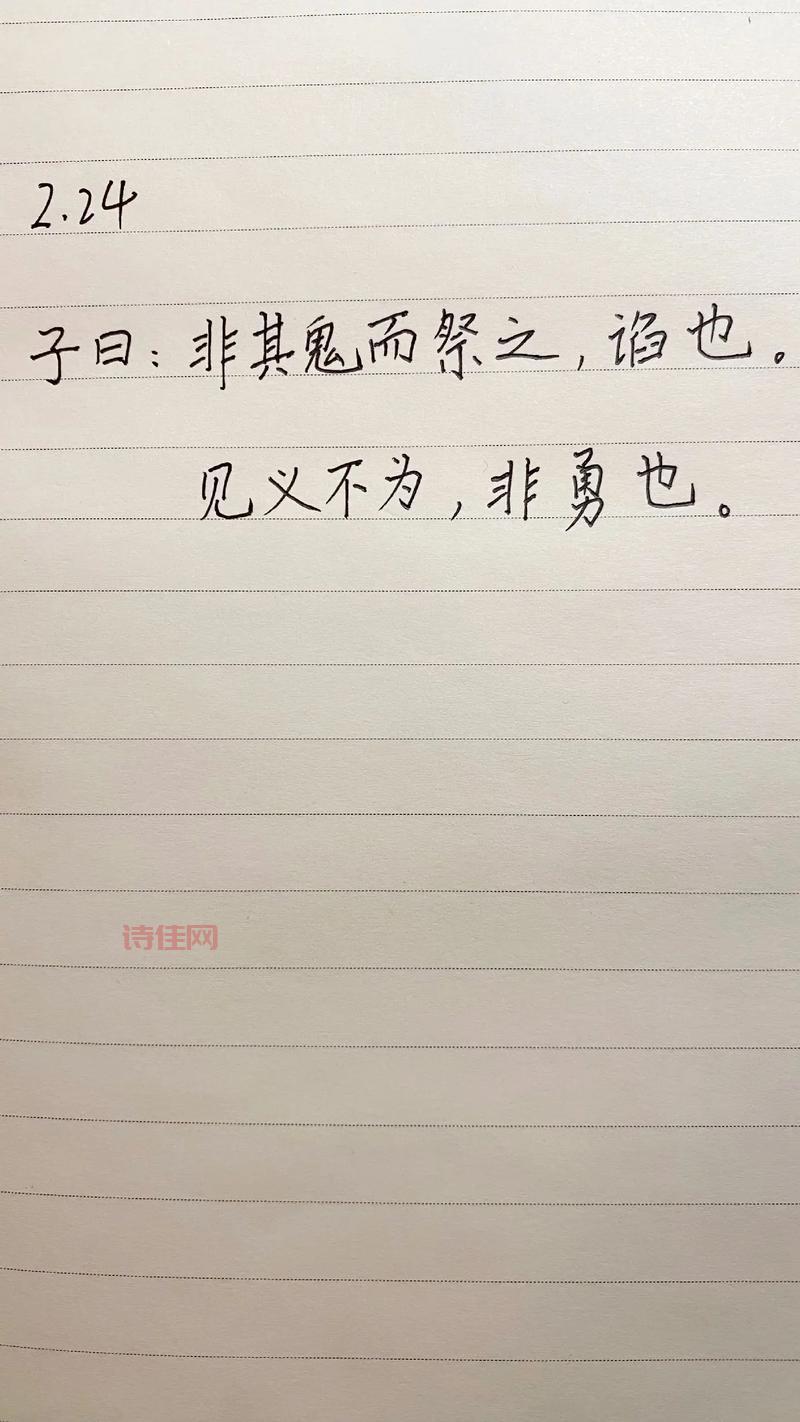 2.24
子曰：非其鬼而祭之，谄也。
见义不为，非勇也。
诗佳网